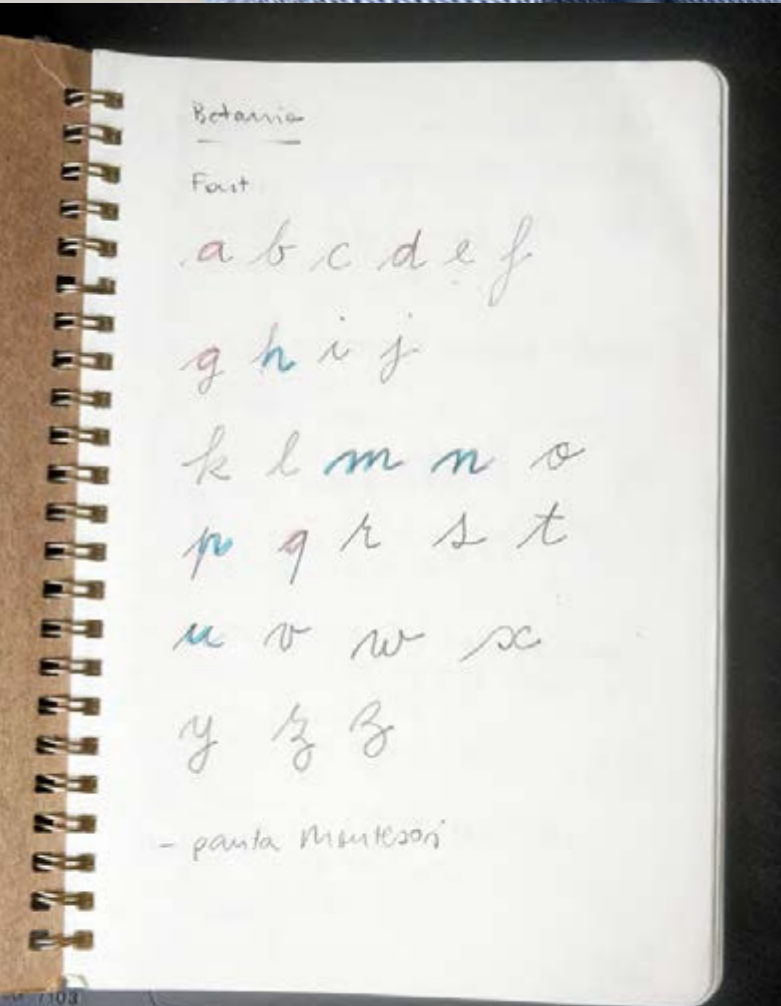 Betania
Font
a b c d e f
g h i j
k l m n o
p q r s t
u v w x
y z z
- pauta Montesori
7103